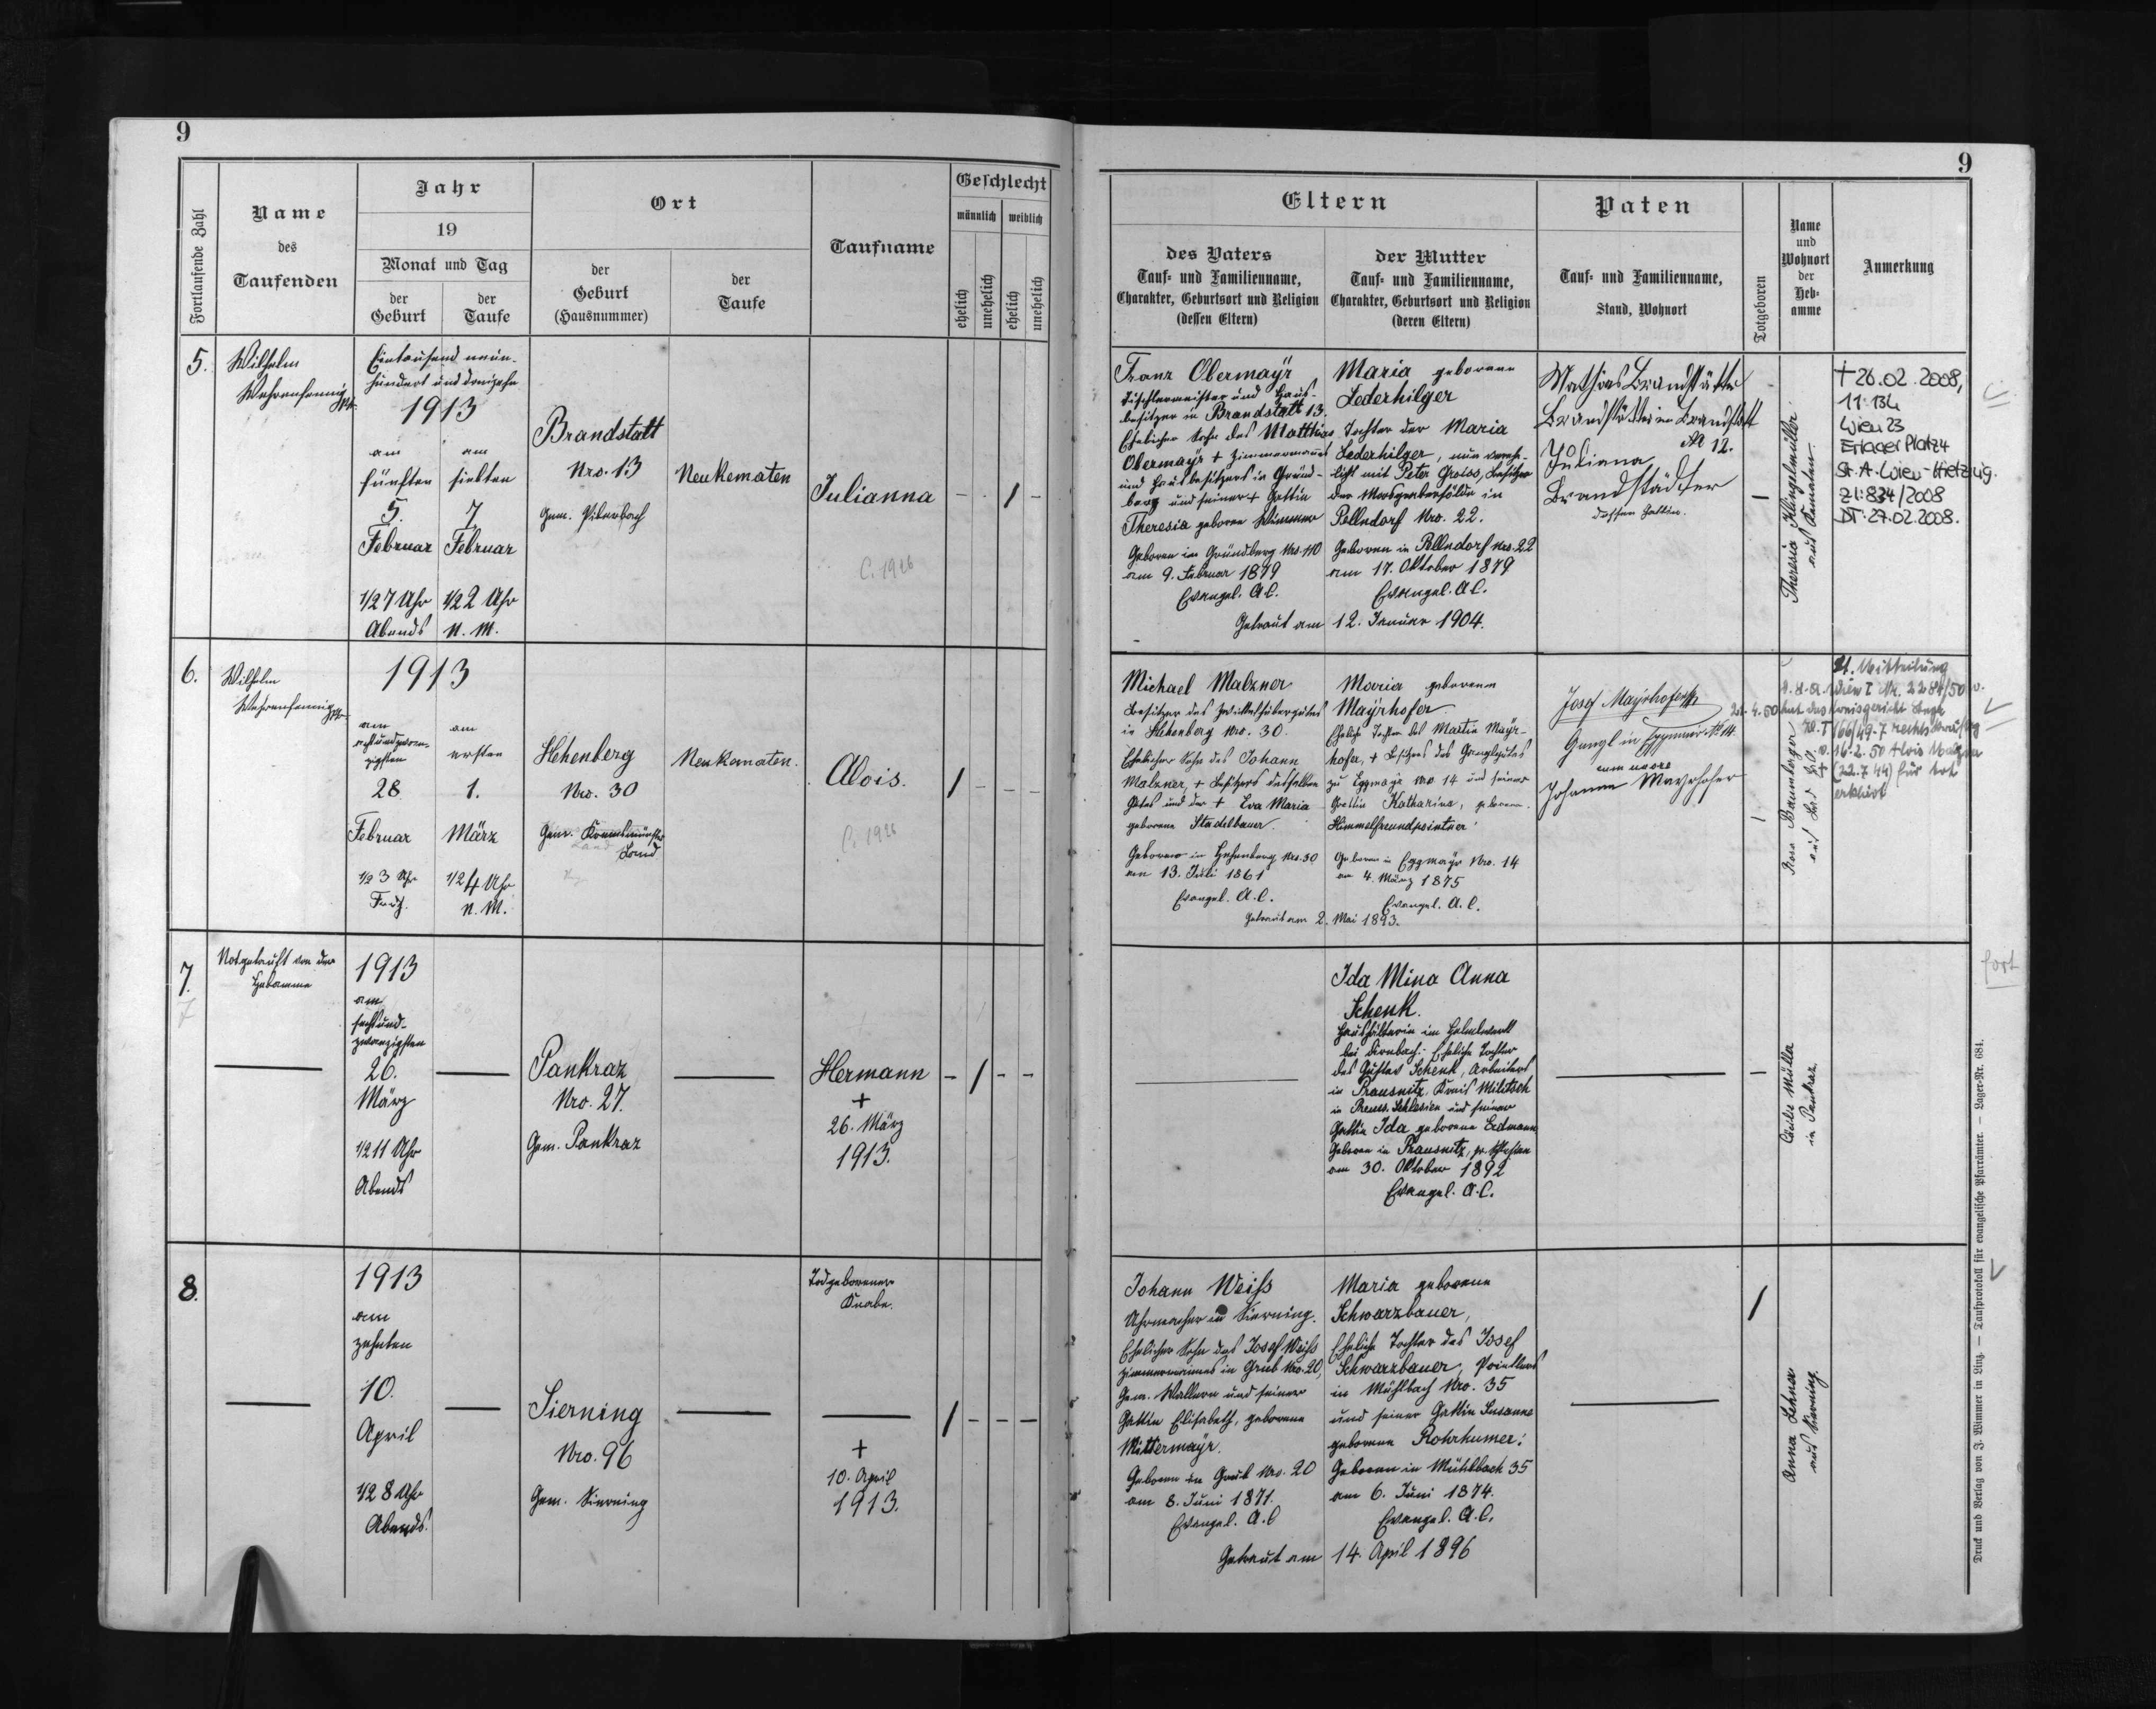 9
9
Fortlaufende Zahl
Name
des
Taufenden
Jahr
19
Monat und Tag
der
Geburt
der
Taufe
Ort
der
Geburt
(Hausnummer)
der
Taufe
Taufname
Geschlecht
männlich
weiblich
ehelich
unehelich
ehelich
unehelich
Eltern
des Vaters
Tauf- und Familienname,
Charakter, Geburtsort und Religion
(dessen Eltern)
der Mutter
Tauf- und Familienname,
Charakter, Geburtsort und Religion
(deren Eltern)
Paten
Tauf- und Familienname,
Stand, Wohnort
Totgeboren
Name
und
Wohnort
der
Heb-
amme
Anmerkung
5.
Wilhelm
Wehrenfennig
Eintausend neun-
hundert und dreizehn
1913
am
fünften
5.
Februar
1/2 7 Uhr
Abends
am
siebten
7.
Februar
1/2 2 Uhr
N. M.
Brandstatt
Nro. 13
Gem. Piberbach
Neukematen
Julianna
C. 1926
– – 1 –
Franz Obermayr
Tischlermeister und Haus-
besitzer in Brandstatt 13.
Ehelicher Sohn des Matthias
Obermayr + Zimmermanns
und Hausbesitzers in Gründ-
berg und seiner + Gattin
Theresia geborene Wimmer
Geboren in Gründberg Nro. 110
am 9. Februar 1879
Evangel. A.C.
Maria geborene
Lederhilger
Tochter der Maria
Lederhilger, nun vereh-
licht mit Peter Groiss, Besitzer
der in
Pellndorf Nro. 22.
Geboren in Pellndorf Nro. 22
am 17. Oktober 1879
Evangel. A.C.
Getraut am 12. Januar 1904.
Mathias Brandstätter
Brandstätter in Brandstatt
No 12.
Juliana
Brandstädter
dessen Gattin.
–
Theresia Klingelmüller
aus Kematen
+ 26.02.2008,
11:13h
Wien 23
Erlaaer Platz 4
St. A. Wien-Hietzing.
Zl: 834/2008
DT: 27.02.2008.
6.
Wilhelm
Wehrenfennig
1913
am
achtundzwan-
zigsten
28
Februar
1/2 3 Uhr
Früh.
am
ersten
1.
März
1/2 4 Uhr
N. M.
Hehenberg
Nro. 30
Gem. Kremsmünster
Land
Neukematen.
Alois.
C. 1926
1 – – –
Michael Malzner
Besitzer des
in Hehenberg Nro. 30.
Ehelicher Sohn des Johann
Malzner, + Besitzers desselben
Gutes und der + Eva Maria
geborene Stadelbauer.
Geboren in Hehenberg Nro. 30
am 13. Juli 1861
Evangel. A.C.
Maria geborene
Mayrhofer
Eheliche Tochter des Martin Mayr-
hofer, + Besitzers des Ganglgutes
zu Eggmayr Nro 14 und seiner
Gattin Katharina, geborene
Himmelfreundpointner
Geboren in Eggmayr Nro. 14
am 4. März 1875
Evangel. A.C.
Getraut am 2. Mai 1893.
Josef Mayrhofer
Gangl in Eggmair No 14.
cum uxore
Johanna Mayrhofer
Rosa Baumberger
aus Bad Hall
Lt. Mitteilung
d. St. A. Wien I Nr. 2284/50 v.
24. 4. 50 hat das Kreisgericht Steyr
rechtskräftig
v. 16. 2. 50 Alois Malzner
+ (22.7.44) für tot
erklärt
7.
7
Notgetauft von der
Hebamme
1913
am
sechsund-
zwanzigsten
26.
März
1/2 11 Uhr
Abends
Pankraz
Nro. 27.
Gem. Pankraz
Hermann
+
26. März
1913.
– 1 – –
Ida Mina Anna
Schenk.
Haushälterin im
bei Dirnbach: Eheliche Tochter
des Gustav Schenk, Arbeiters
in Prausnitz, Kreis Militsch
in Preuss. Schlesien und seiner
Gattin Ida geborene Erdmann
Geboren in Prausnitz, pr. Schlesien
am 30. Oktober 1892
Evangel. A.C.
–
Cäcilie Müller
in Pankraz
fort
8.
1913
am
zehnten
10.
April
1/2 8 Uhr
Abends.
Sierning
Nro. 96
Gem. Sierning
Todgeborener
Knabe.
+
10. April
1913.
1 – – –
Johann Weiß
Uhrmacher in Sierning.
Ehelicher Sohn des Josef Weiß
Zimmermannes in Grub Nro. 20,
Gem. Wallern und seiner
Gattin Elisabeth, geborene
Mittermayr.
Geboren in Grub Nro. 20
am 8. Juni 1871.
Evangel. A.C
Maria geborene
Schwarzbauer,
Eheliche Tochter des Josef
Schwarzbauer, Pointlers
in Mühlbach Nro. 35
und seiner Gattin Susanna
geborene Rohrhumer:
Geboren in Mühlbach 35
am 6. Juni 1874.
Evangel. A.C.
Getraut am 14. April 1896
1
Anna Lehner
aus Sierning
Druck und Verlag von J. Wimmer in Linz. — Taufprotokoll für evangelische Pfarrämter. — Lager-Nr. 684.